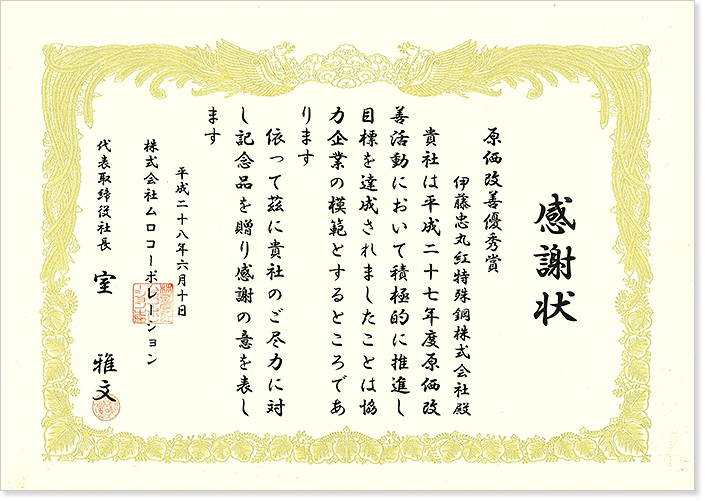 感謝状
原価改善優秀賞
伊藤忠丸紅特殊鋼株式会社殿
貴社は平成二十七年度原価改
善活動において積極的に推進し
目標を達成されましたことは協
力企業の模範とするところであ
ります
依って茲に貴社のご尽力に対
し記念品を贈り感謝の意を表し
ます
平成二十八年六月十日
株式会社ムロコーポレーション
代表取締役社長 室 雅文